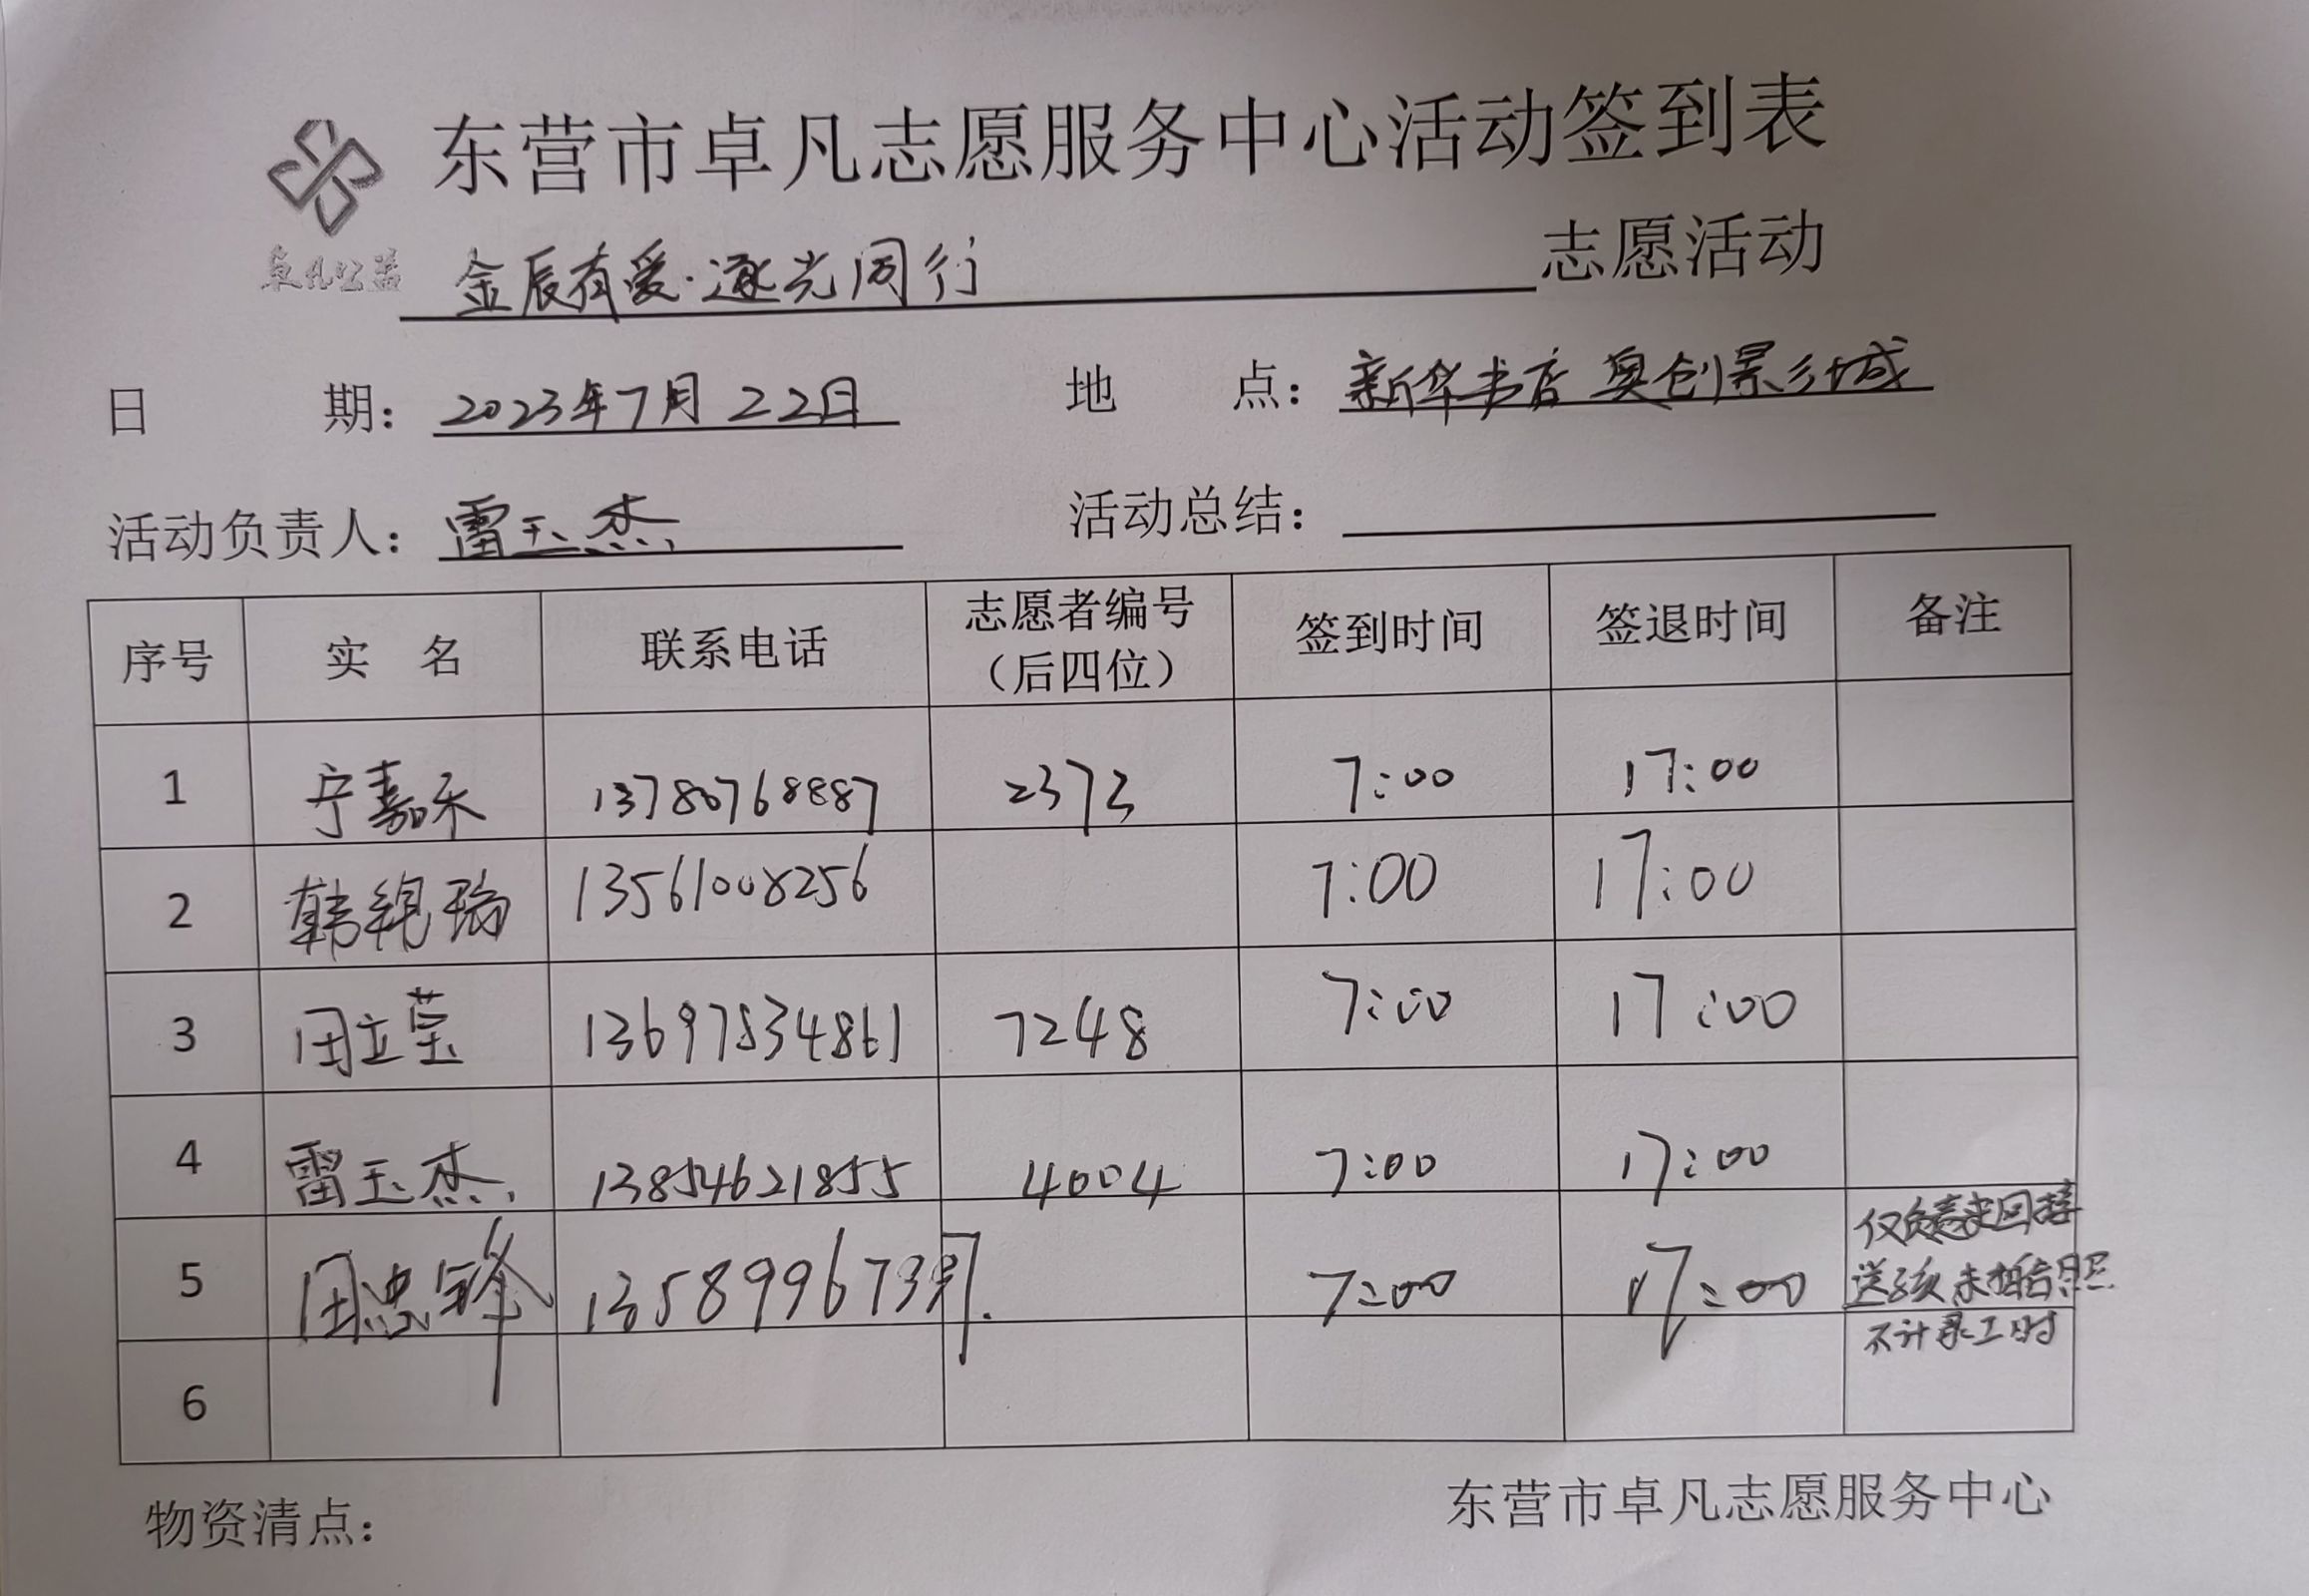 东营市卓凡志愿服务中心活动签到表
卓凡公益
金辰有爱·逐光同行 志愿活动
日 期：2023年7月22日 地 点：新华书店 奥创影城
活动负责人：雷玉杰 活动总结：
序号 实 名 联系电话 志愿者编号（后四位） 签到时间 签退时间 备注
1 宁嘉禾 13780768887 2373 7:00 17:00
2 韩 瑞 13561008256 7:00 17:00
3 田立莹 13697834861 7248 7:00 17:00
4 雷玉杰 13854621855 4004 7:00 17:00
5 忠锋 7:00 17:00 仅负责来回接
送孩 未拍合照
不计录工时
6
物资清点： 东营市卓凡志愿服务中心